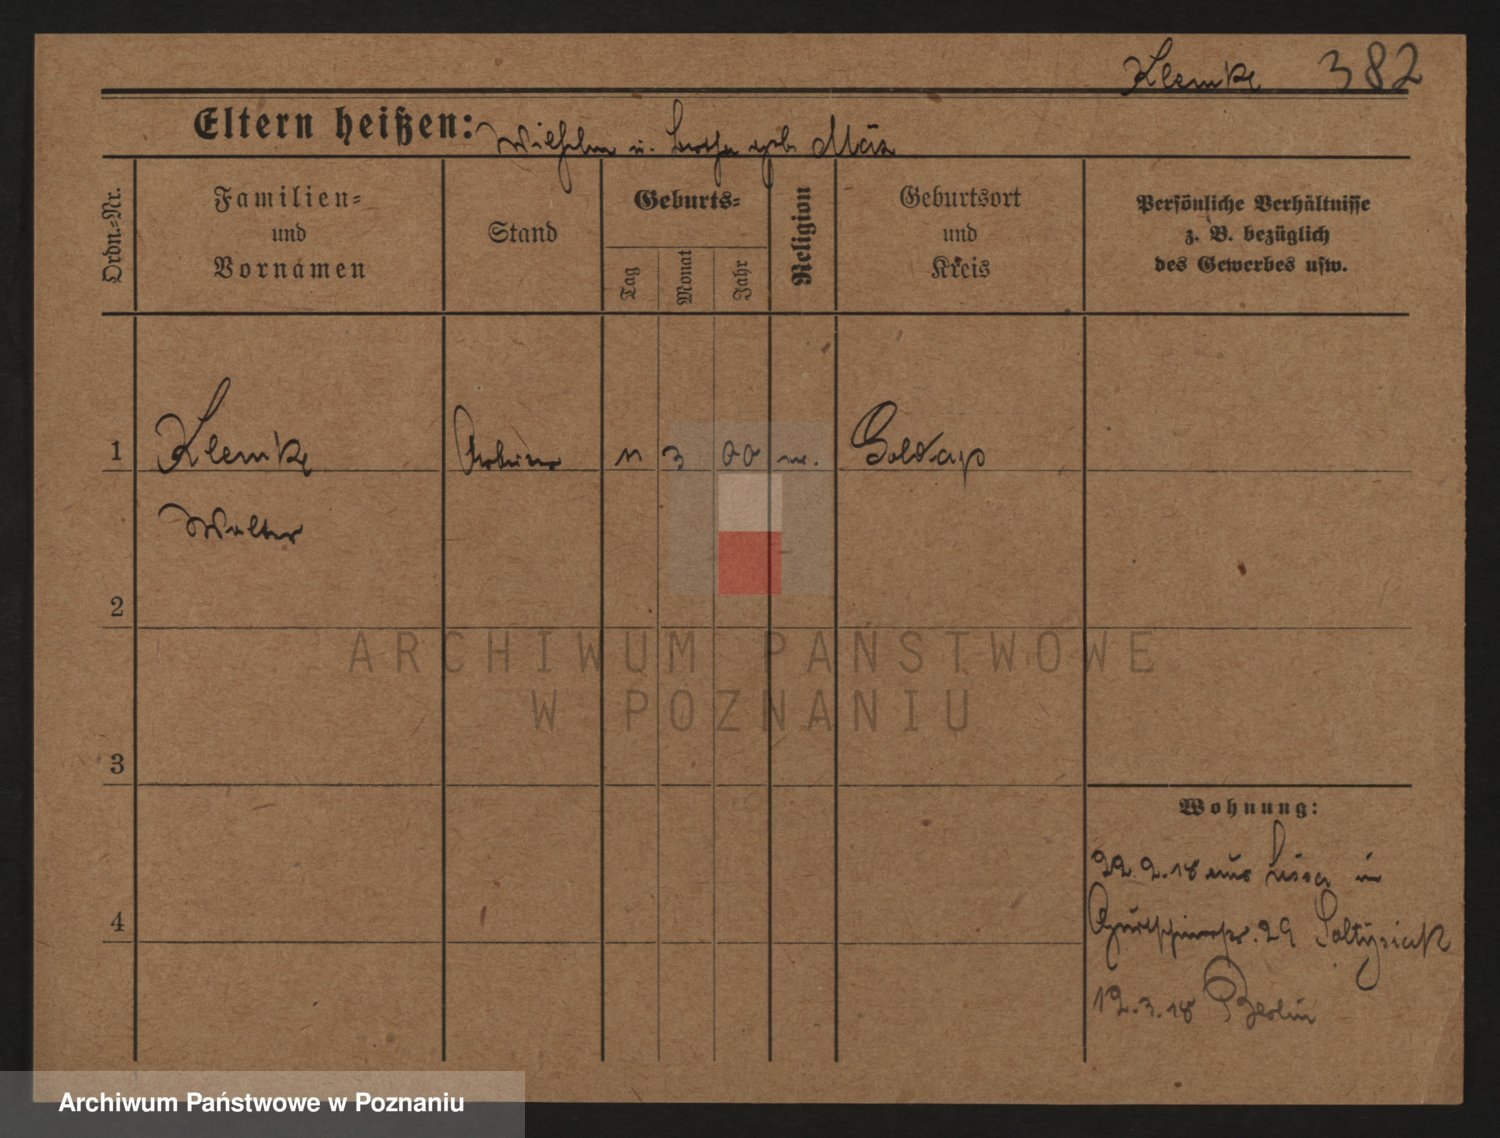 Klemke 382
Eltern heißen: Wilhelm u. Bertha geb. März
Ordn.=Nr.
Familien=
und
Vornamen
Stand
Geburts=
Tag
Monat
Jahr
Religion
Geburtsort
und
Kreis
Persönliche Verhältnisse
z. B. bezüglich
des Gewerbes usw.
1 Klemke Arbeiter 11 3 00 Goldap
Walter
2
3
4
Wohnung:
22.2.18 aus Lissa in
29 Soltysiak
12.3.18 Berlin
ARCHIWUM PAŃSTWOWE
W POZNANIU
Archiwum Państwowe w Poznaniu